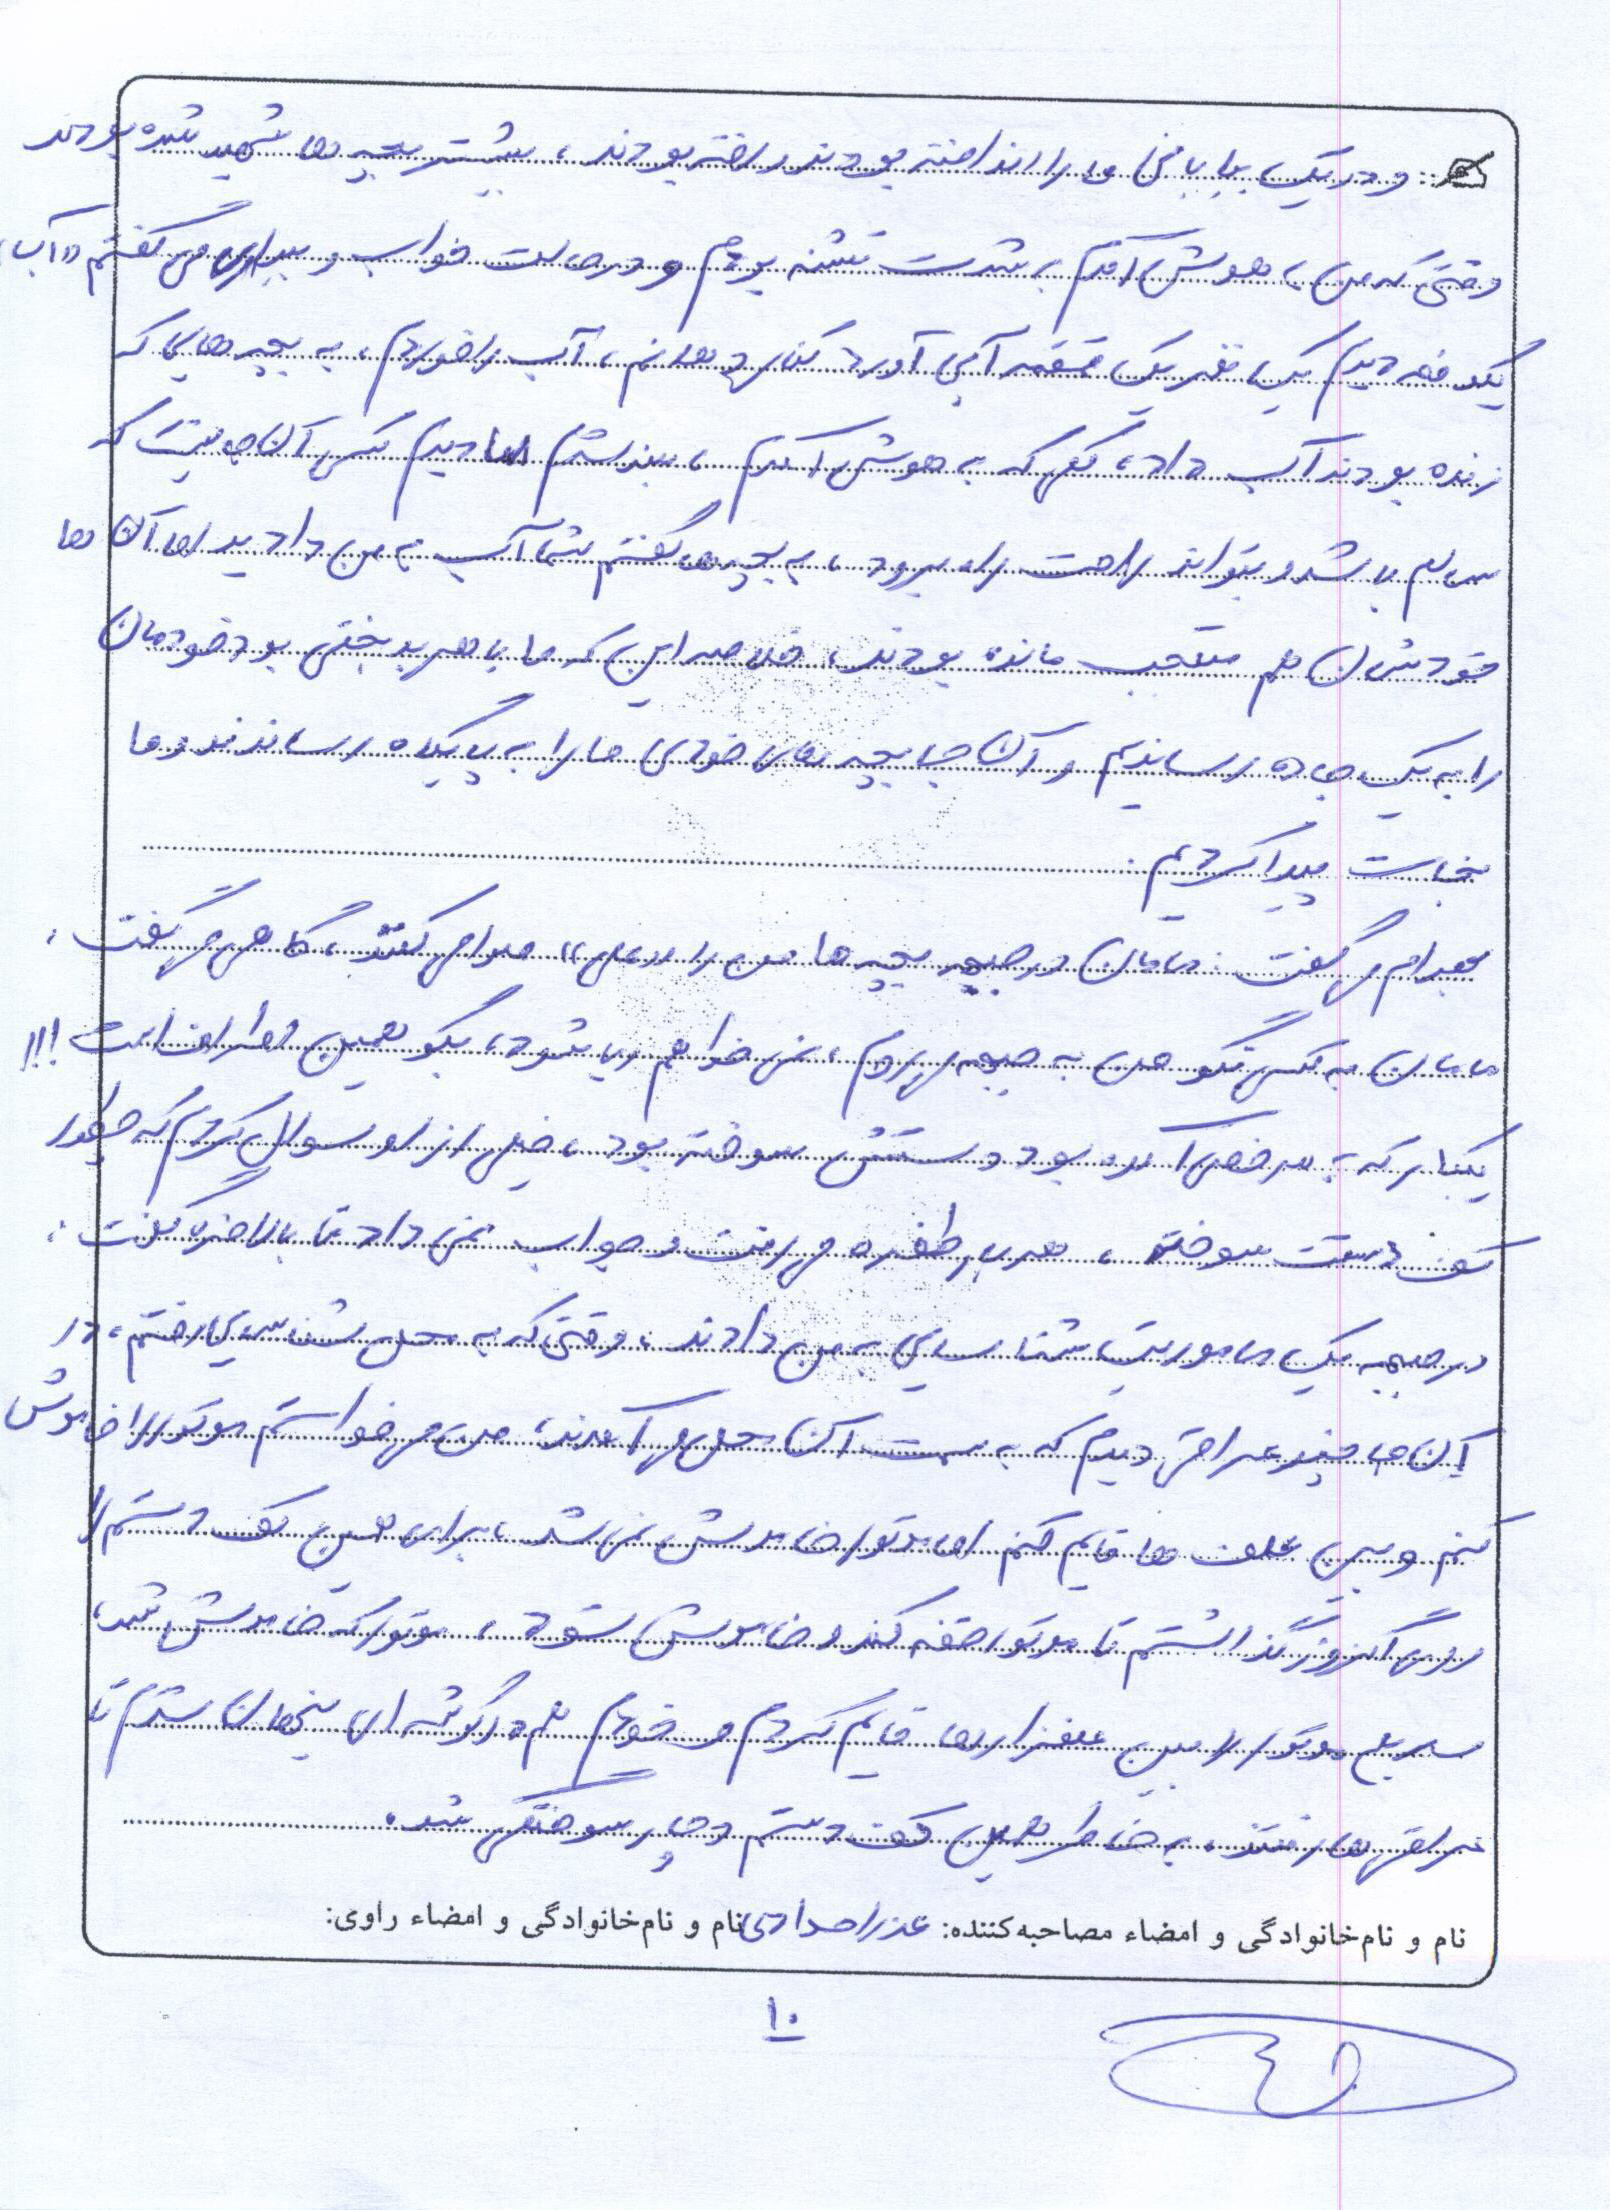 و در یک بیابانی ما را انداخته بودند و رفته بودند، بیشتر بچه ها شهید شده بودند
وقتی که من به هوش آمدم به شدت تشنه بودم و در حالت خواب و بیداری می گفتم «آب،
یکدفعه دیدم یک نفر یک قمقمه آبی آورد کنار دهانم، آب را خوردم، به بچه هایی که
زنده بودند آب داد، کمی که به هوش آمدم، بلند شدم اما دیدم کسی آن جا نیست که
سالم باشد و بتواند راحت راه برود، به بچه ها گفتم شما آب به من دادید اما آن ها
خودشان هم متعجب مانده بودند، خلاصه این که ما با هر بدبختی بود خودمان
را به یک جاده رساندیم و آن جا بچه های خودی ما را به پایگاه رساندند و ما
نجات پیدا کردیم.
بهرام می گفت: مامان در جبهه بچه ها من را «علی» صدا می کنند، گاهی می گفت:
مامان به کسی نگو من به جبهه می روم، نمی خواهم ریا شود، بگو همین اطراف است!!!
یکبار که به مرخصی آمده بود دستش سوخته بود، خیلی از او سوال کردم که چطور
کف دستت سوخته، هر بار طفره می رفت و جواب نمی داد تا بالاخره گفت:
در جبهه یک ماموریت شناسایی به من دادند، وقتی که به محل شناسایی رفتم، در
آن جا چند عراقی دیدم که به سمت آن محل می آمدند، من می خواستم موتور را خاموش
کنم و بین علف ها قایم کنم اما موتور خاموش نمی شد، برای همین کف دستم را
روی اگزوز گذاشتم تا موتور خفه کند و خاموش شود، موتور که خاموش شد،
سریع موتور را بین علفزارها قایم کردم و خودم هم در گوشه ای پنهان شدم تا
عراقی ها رفتند، به خاطر همین کف دستم دچار سوختگی شده.
نام و نام‌خانوادگی و امضاء مصاحبه‌کننده: عذرا حدادی نام و نام‌خانوادگی و امضاء راوی:
۱۰